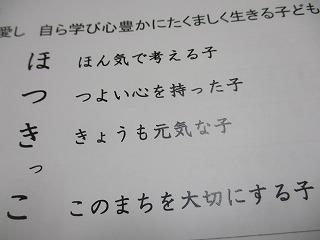 愛し 自ら学び心豊かにたくましく生きる子ども
ほ ほん気で考える子
つ つよい心を持った子
き きょうも元気な子
っ
こ このまちを大切にする子